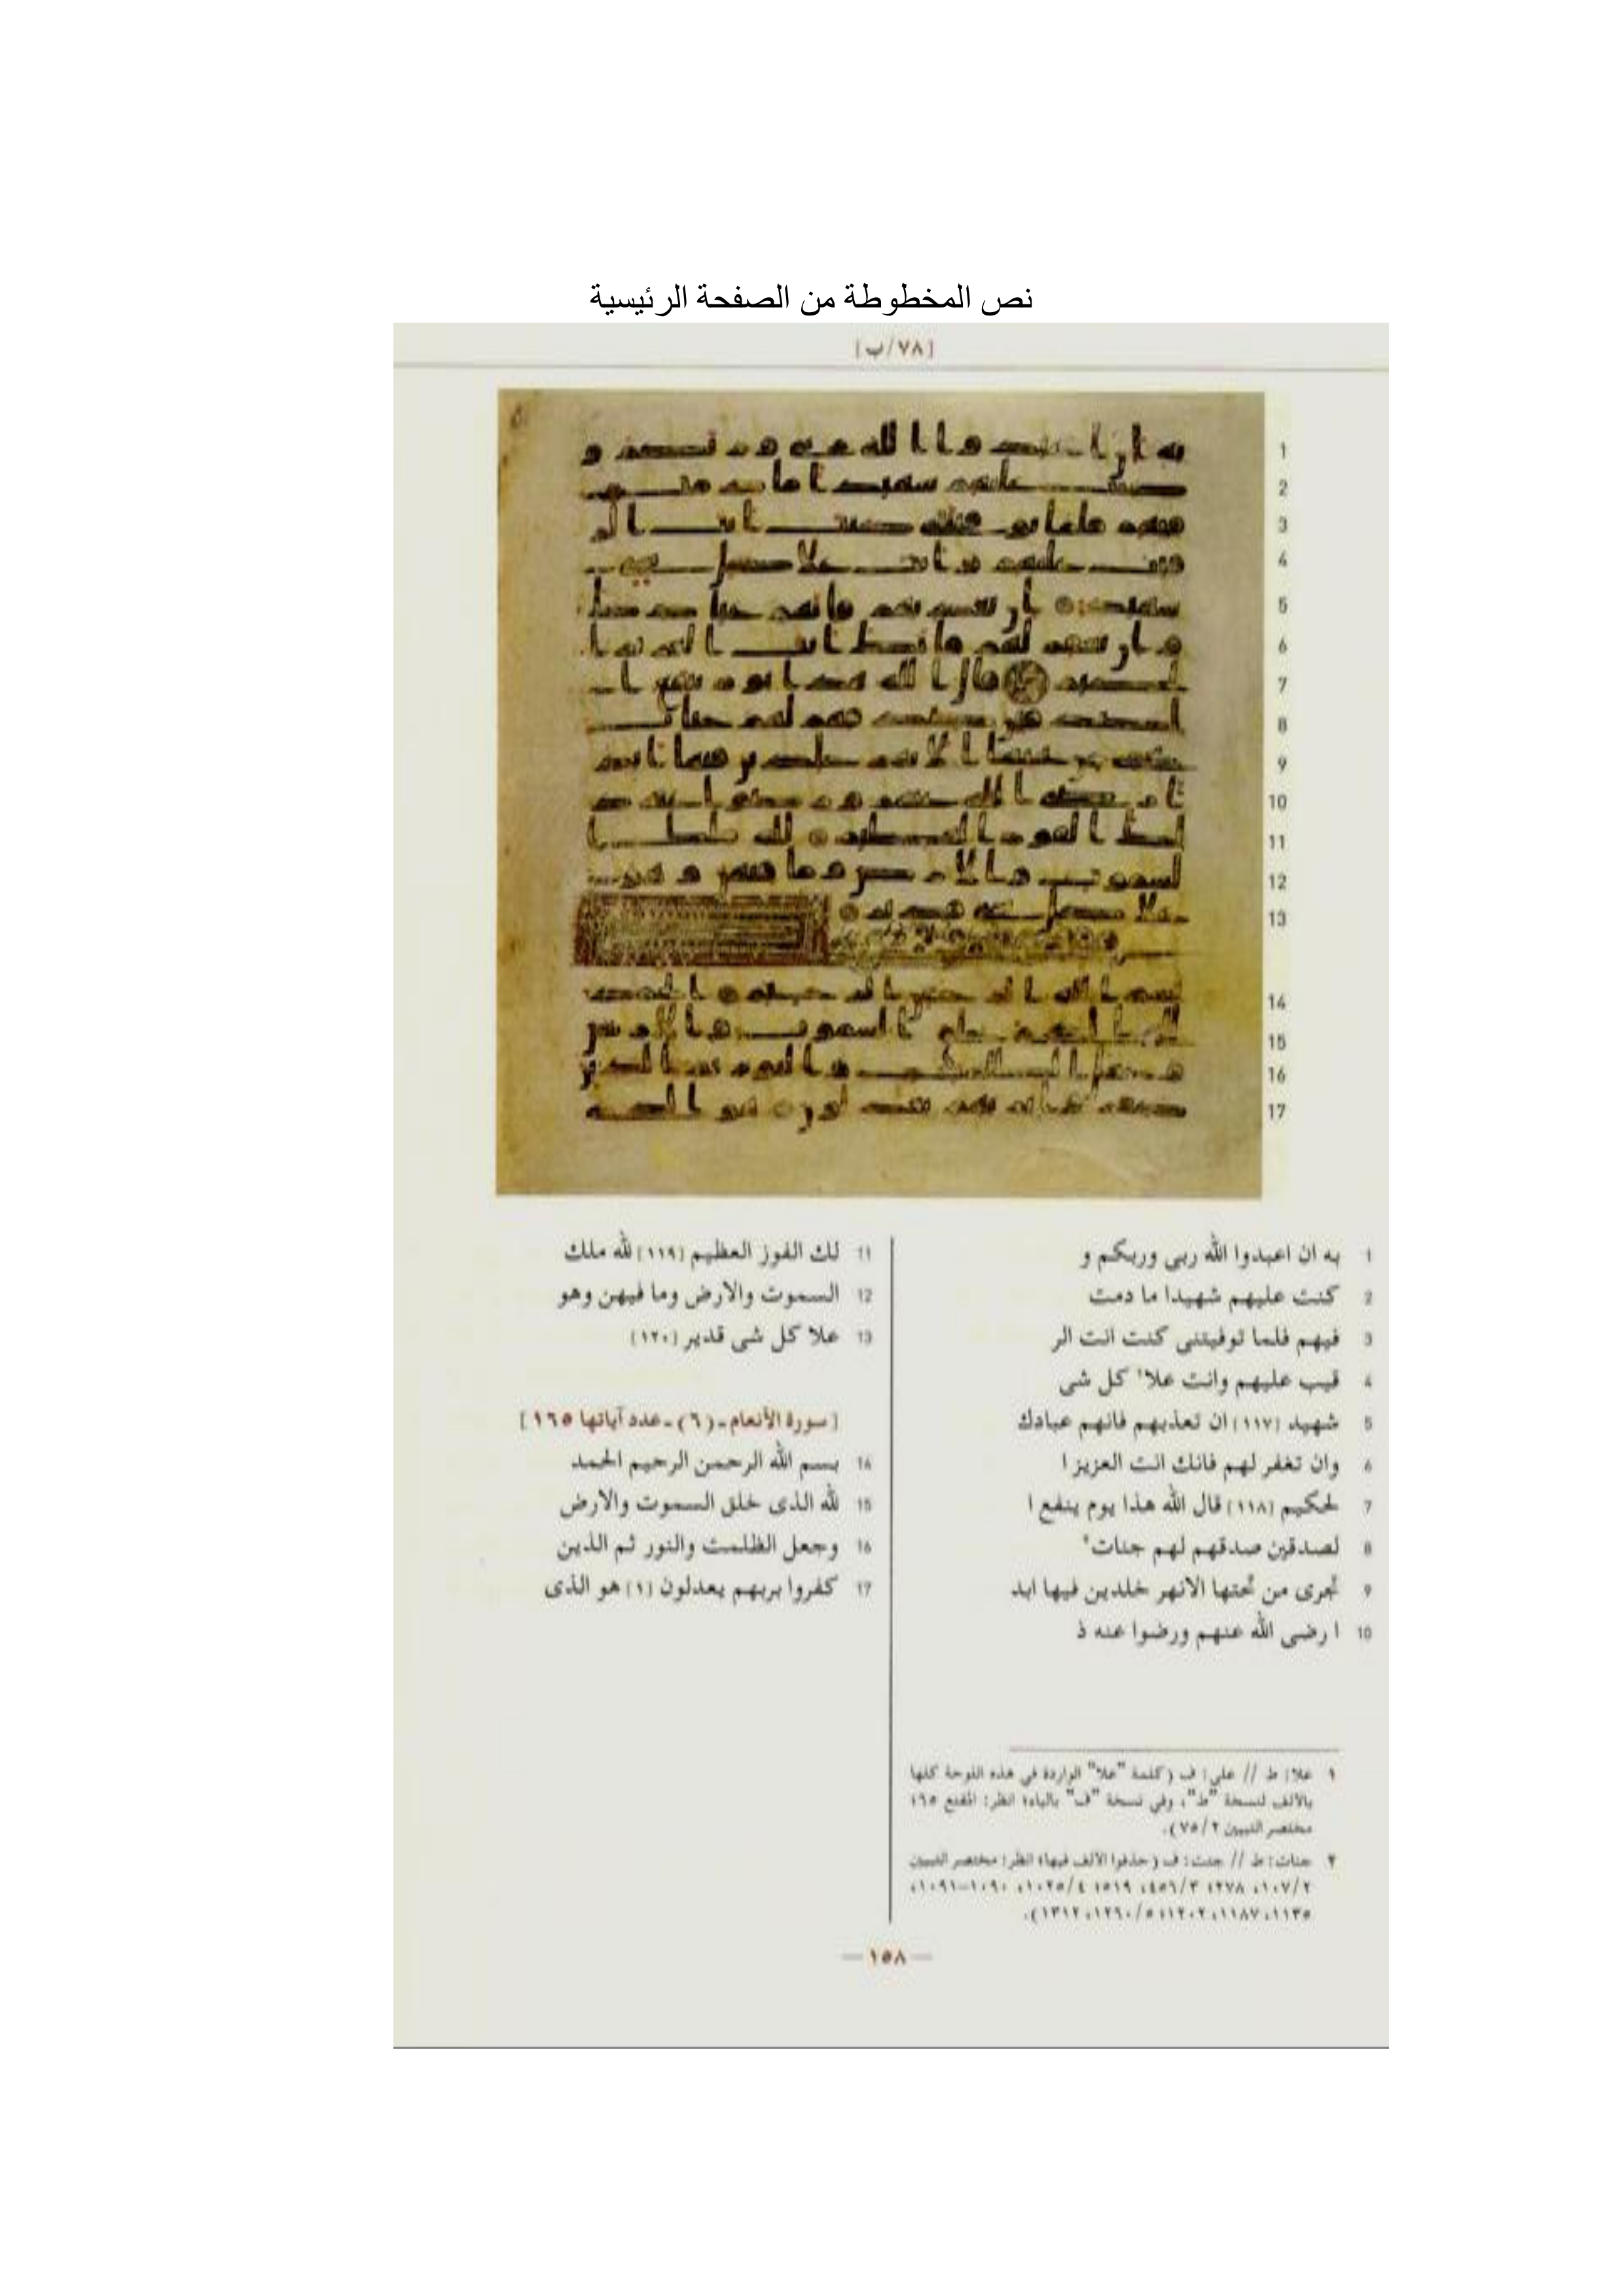 نص المخطوطة من الصفحة الرئيسية
[٧٨/ب]
1 به ان اعبدوا الله ربى وربكم و
2 كنت عليهم شهيدا ما دمت
3 فيهم فلما توفيتنى كنت انت الر
4 قيب عليهم وانت علا١ كل شى
5 شهيد (١١٧) ان تعذبهم فانهم عبادك
6 وان تغفر لهم فانك انت العزيز ا
7 لحكيم (١١٨) قال الله هذا يوم ينفع ا
8 لصدقين صدقهم لهم جنات٢
9 تجرى من تحتها الانهر خلدين فيها ابد
10 ا رضى الله عنهم ورضوا عنه ذ
11 لك الفوز العظيم (١١٩) لله ملك
12 السموت والارض وما فيهن وهو
13 علا كل شى قدير (١٢٠)
[سورة الأنعام-(٦)-عدد آياتها ١٦٥]
14 بسم الله الرحمن الرحيم الحمد
15 لله الذى خلق السموت والارض
16 وجعل الظلمت والنور ثم الذين
17 كفروا بربهم يعدلون (١) هو الذى
١ علا: ط // على: ف (كلمة "علا" الواردة في هذه اللوحة كلها
بالألف لنسخة "ط"، وفي نسخة "ف" بالياء؛ انظر: المقنع ٦٥؛
مختصر التبيين ٧٥/٢).
٢ جنات: ط // جنت: ف (حذفوا الألف فيها؛ انظر: مختصر التبيين
—١٥٨—